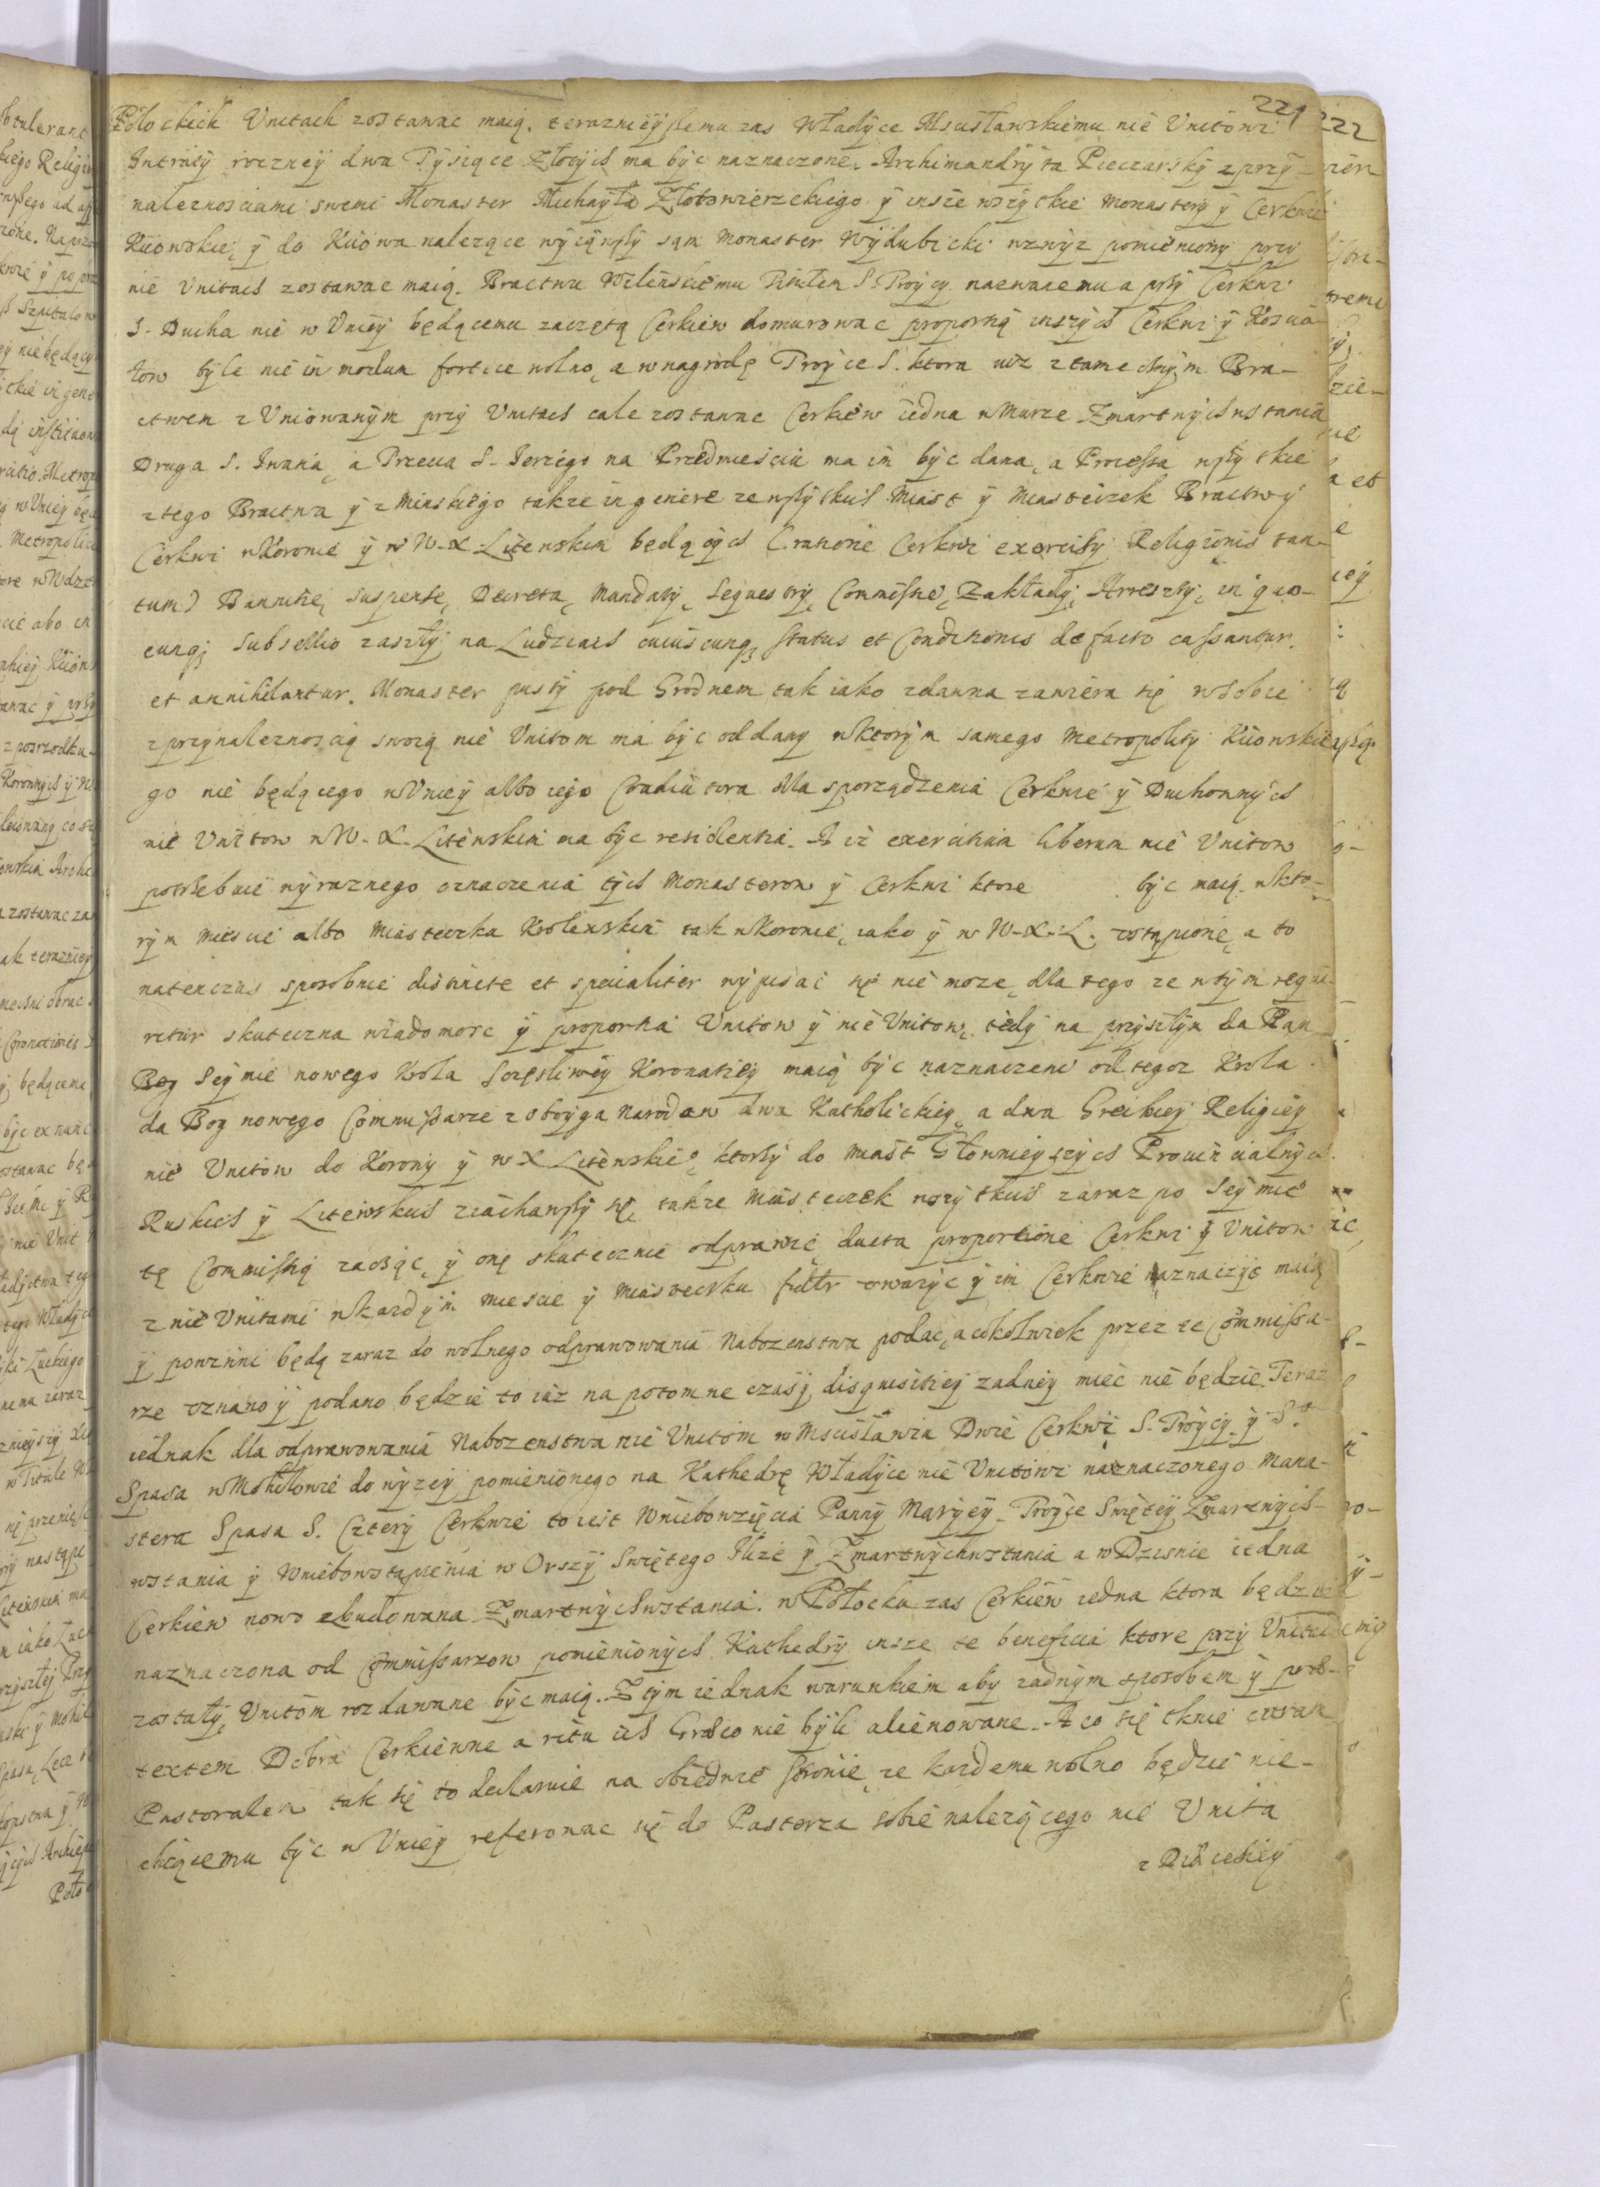 221
Połockich Unitach zostawac maią. terazniėyszemu zas Władyce Mscisławskiemu niė Unitowi
Intraty roczneÿ dwa Tysiące Złotych ma byc naznaczone. Archimandryta Pieczarskÿ z przy-
naleznosciami swemi Monaster Michayła Złotowierzchiego ÿ insze wszytkie monastery ÿ Cerkwie
Kiiowskie, ÿ do Kiiowa nalezące wyiąwszy sąm Monaster Wydubicki wzwyz pomieniony przy
niė Unitach zostawac maią. Bractwu Wilenskiemu Titulem S. Troycy nazwanemu a przy Cerkwi
S. Ducha niė w Unieÿ będącemu zaczętą Cerkiew domurowac proportią inszych Cerkwi ÿ Koscio-
łow byle niė in modum fortece wolno, a w nagrodę Troyce S. ktora iuż z tamecznym Bra-
ctwem z Uniowanym przy Unitach cale zostawac Cerkiew iedna w Murze Zmartwychwstania
Druga S. Iwana, a Trzecia S. Ierzego na Przedmiesciu ma im byc dana, a Processa wszytkie
z tego Bractwa ÿ z Minskiego takze in genere ze wszytkich Miast ÿ Miasteczek Bractwy
Cerkwi w Koronie ÿ w W. X. Litewskim będących (ratione Cerkwi exercity Religionis tan-
tum) Bannitie, suspense, Decreta, Mandaty, Sequestry, Commissie, Zakłady, Areszty, in quo-
cunq; subsellio zaszły na Ludziach cuiuscunq; status et Conditionis de facto cassantur.
et annihilantur. Monaster pusty pod Grodnem tak iako zdawna zawiera się w sobie
z przynaleznoscią swoią niė Unitom ma byc oddany w ktorym samego Metropolity Kiiowskie-
go niė będącego w Unieÿ albo iego Coadiutora dla sporządzenia Cerkwie ÿ Duchownych
niė Unitow w W. X. Litewskim ma byc residentia. A iz exercitium liberum niė Unitow
potrzebuie wyraznego oznaczenia tych Monasterow ÿ Cerkwi ktore byc maią. w kto-
rym Miescie albo Miasteczku Krolewskim tak w Koronie, iako ÿ w W. X. L. ustąpione, a to
natenczas sposobnie distincte et specialiter wypisac się niė moze, dla tego ze w tym requi-
retur skuteczna wiadomosc ÿ proportia Unitow ÿ niė Unitow, tedÿ na przyszłym da Pan
Bog Seymie nowego Krola szczęsliweÿ Koronatieÿ maią byc naznaczeni od tegoz Krola
da Bog nowego Commissarze z oboyga Narodow dwa Katholickieÿ, a dwa Greckieÿ Religieÿ
niė Unitow do Korony ÿ w X Litewskie°, ktorzy do Miast Głownieyszych Prowincialnych
Ruskich ÿ Litewskich ziachawszy się, takze Miasteczek wszytkich zaraz po Seymie
tę Commissią zacząc, ÿ onę skutecznie odprawic, ducta proportione Cerkwi ÿ Unitow
z niė Unitami w kazdym Miescie ÿ Miasteczku uwazyc ÿ im Cerkwie naznaczyc maią
ÿ powinni będą zaraz do wolnego odprawowania Nabozenstwa podac, a cokolwiek przez te Commissa-
rze uznano ÿ podano będzie to iuż na potomne czasy disquisitieÿ zadneÿ miec niė będzie. Teraz
iednak dla odprawowania Nabozenstwa niė Unitom w Mscisławiu Dwie Cerkwi S. Troycy ÿ S°
Spasa w Mohilowie do wyzeÿ pomienionego na Kathedrę Władyce niė Unitowi naznaczonego Mana-
stera Spasa S. Cztery Cerkwie to iest Wniebowzięcia Panny Maryeÿ. Troyce Swięteÿ Zmartwych-
wstania ÿ Wniebowstąpienia w Orszy Swiętego Ilie ÿ Zmartwychwstania a w Dzisnie iedna
Cerkiew nowo zbudowana Zmartwychwstania. w Połocku zas Cerkiew iedna ktora będzie
naznaczona od Commissarzow pomienionych Kathedry insze te beneficia ktore przy Unitach
zostały, Unitom rozdawane byc maią. Z tym iednak warunkiem aby zadnym sposobem ÿ prae-
textem Dobra Cerkiewne a ritu ich Graeco niė były alienowane. A co się tknie curam
Pastoralem tak się to declaruie na obiedwie stronie, ze kazdemu wolno będzie nie-
chcącemu byc w Unieÿ referowac się do Pasterza sobie nalezącego niė Unita
z Diæcezieÿ